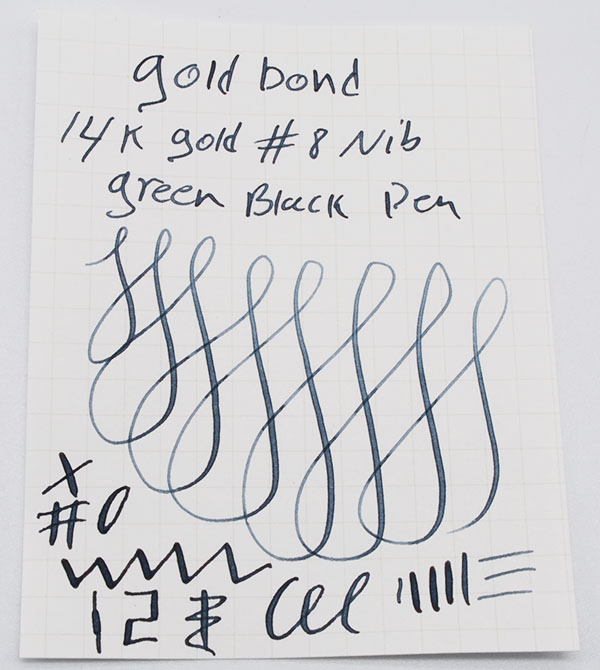 gold bond
14K gold #8 Nib
green Black Pen
X
#0